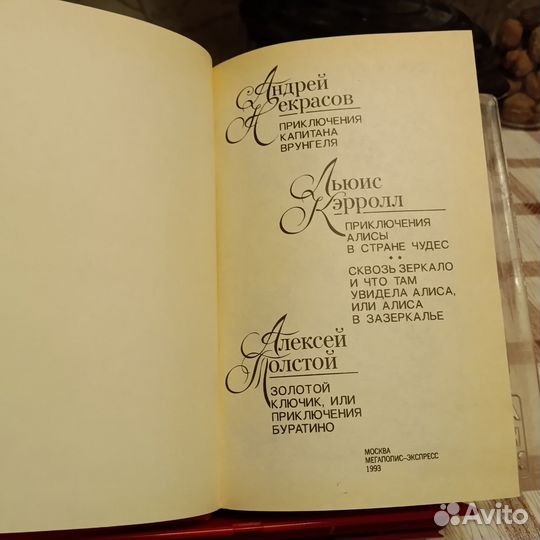 Андрей
Некрасов
ПРИКЛЮЧЕНИЯ
КАПИТАНА
ВРУНГЕЛЯ
Льюис
Кэрролл
ПРИКЛЮЧЕНИЯ
АЛИСЫ
В СТРАНЕ ЧУДЕС
• •
СКВОЗЬ ЗЕРКАЛО
И ЧТО ТАМ
УВИДЕЛА АЛИСА,
ИЛИ АЛИСА
В ЗАЗЕРКАЛЬЕ
Алексей
Толстой
ЗОЛОТОЙ
КЛЮЧИК, ИЛИ
ПРИКЛЮЧЕНИЯ
БУРАТИНО
МОСКВА
МЕГАПОЛИС-ЭКСПРЕСС
1993
Avito